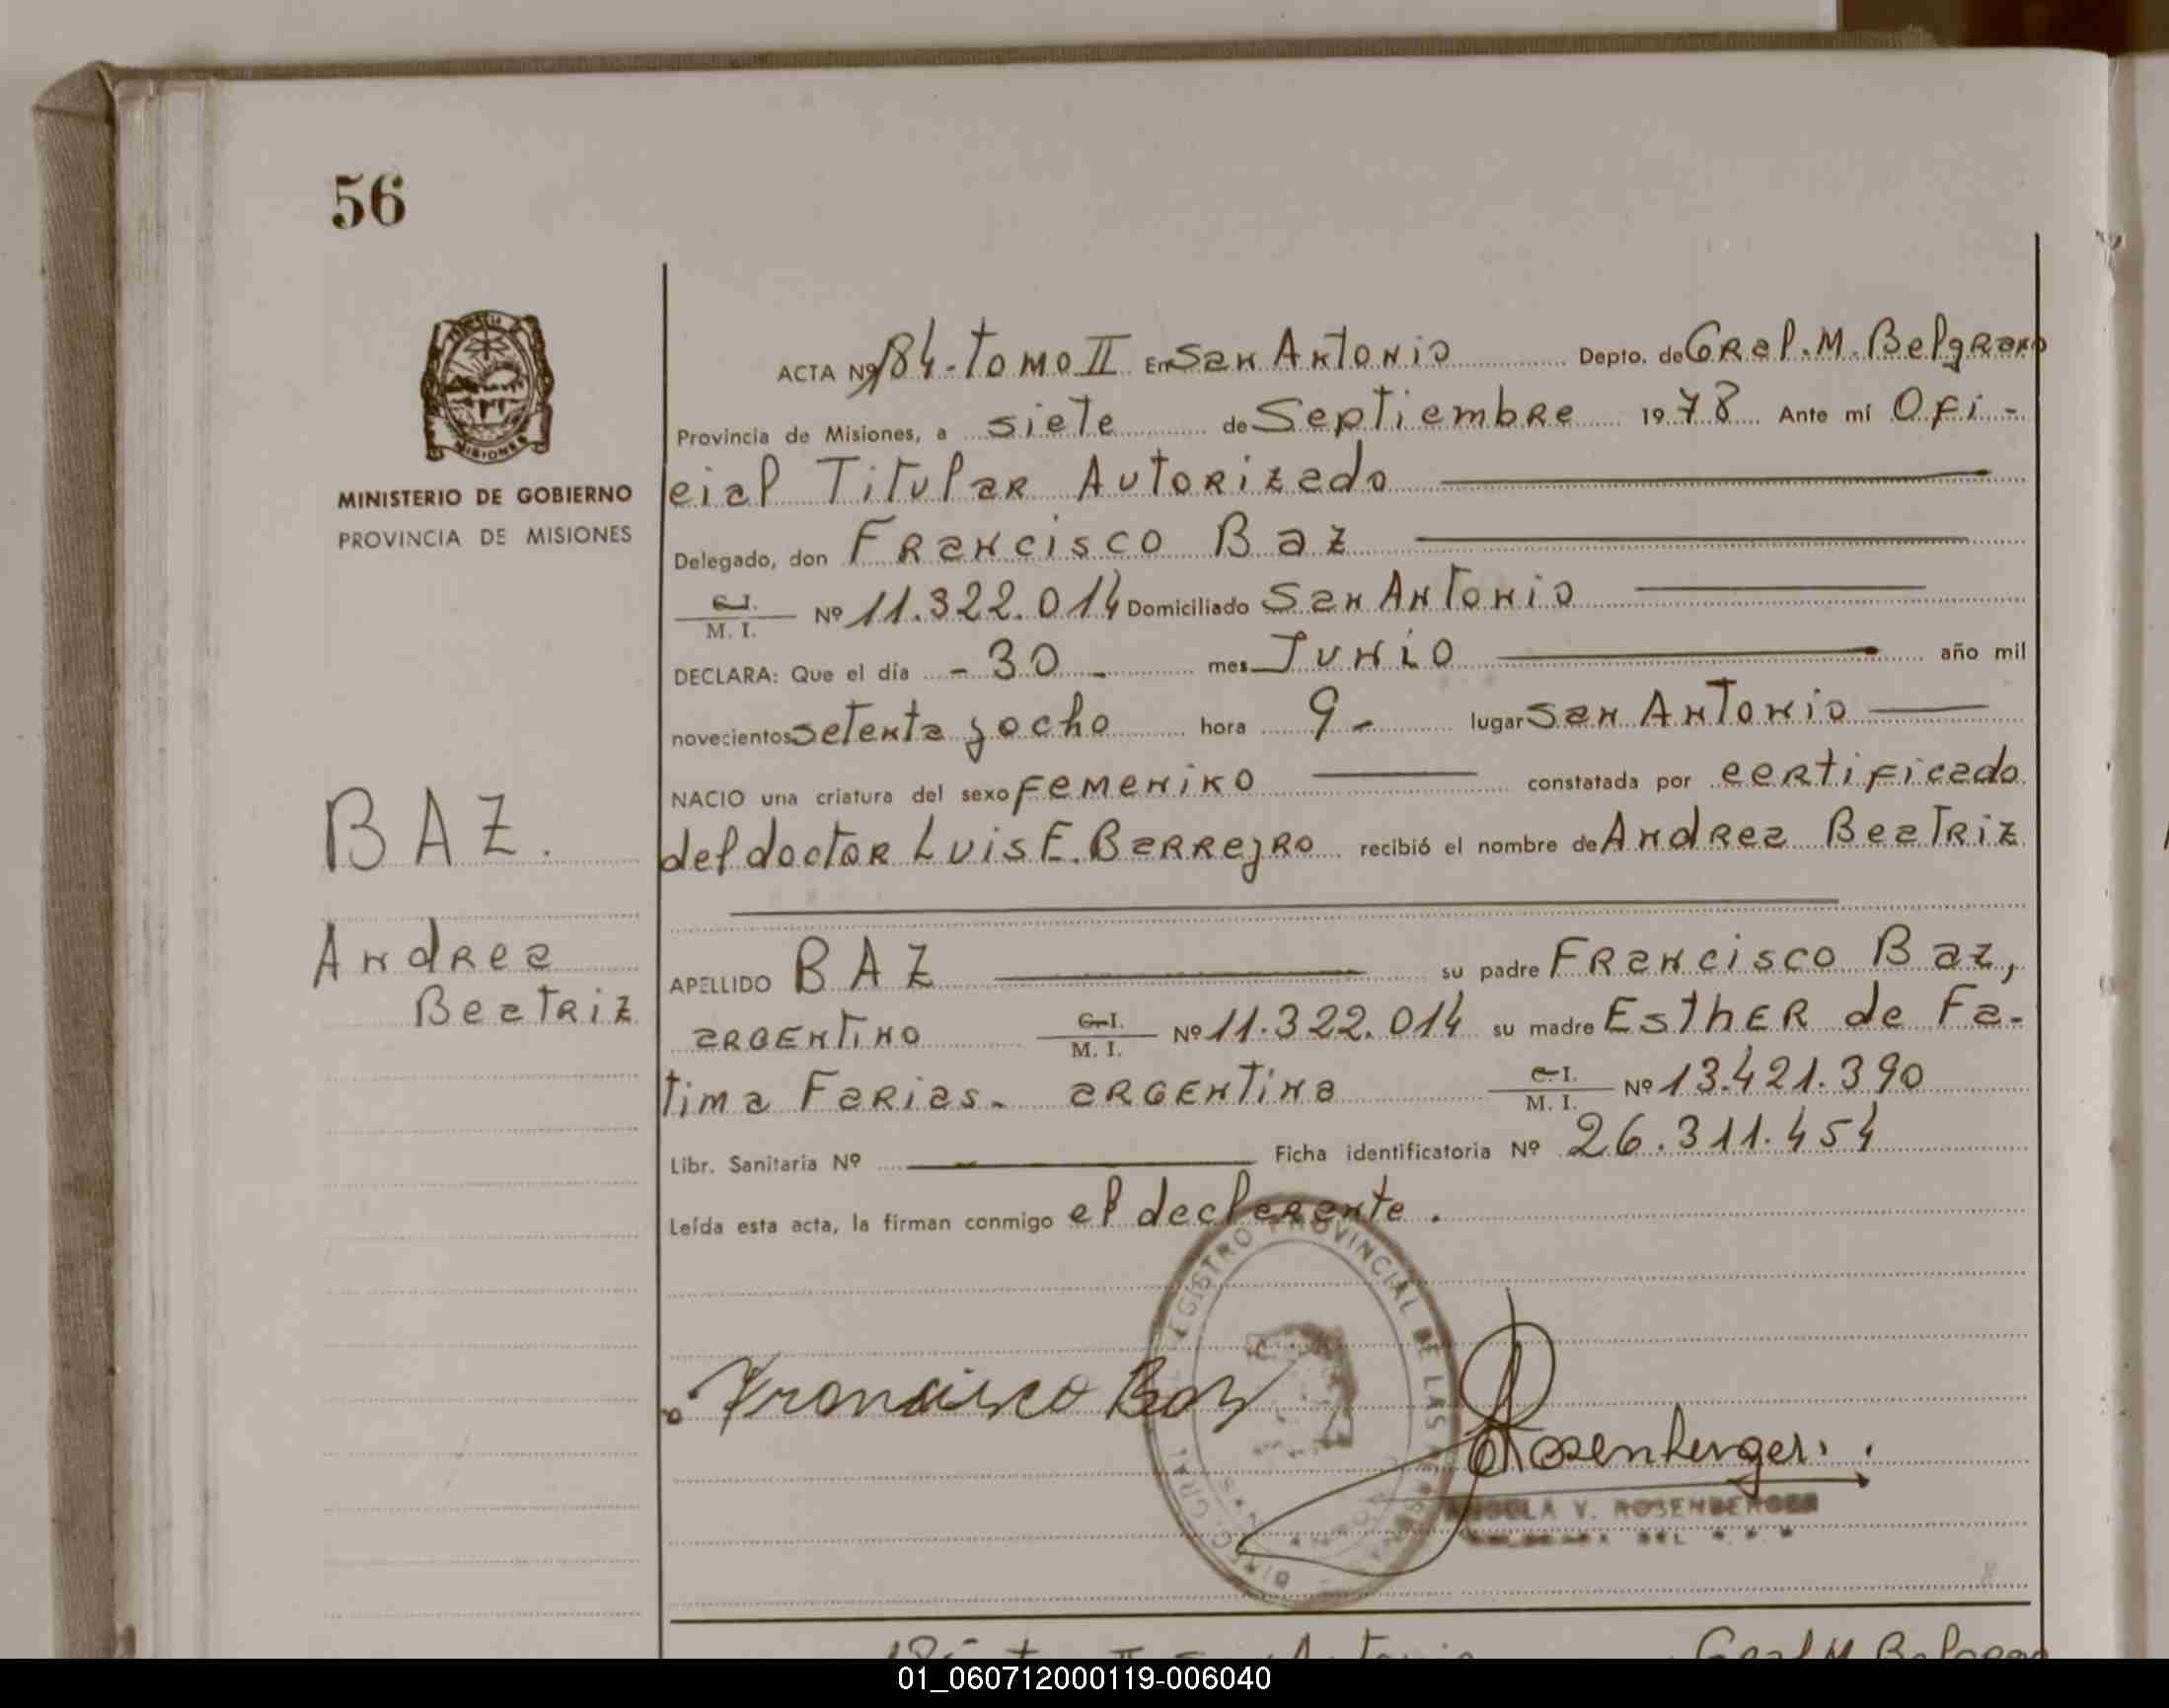 56
MINISTERIO DE GOBIERNO
PROVINCIA DE MISIONES
BAZ.
Andrea
Beatriz
ACTA Nº 184-Tomo II En San Antonio Depto. de Gral. M. Belgrano
Provincia de Misiones, a siete de Septiembre 1978 Ante mí Ofi-
cial Titular Autorizado
Delegado, don Francisco Baz
C.I. M. I. Nº 11.322.014 Domiciliado San Antonio
DECLARA: Que el día -30- mes Junio año mil
novecientos setenta y ocho hora 9- lugar San Antonio
NACIO una criatura del sexo femenino constatada por certificado
del doctor Luis E. Barreyro recibió el nombre de Andrea Beatriz
APELLIDO BAZ su padre Francisco Baz,
argentino C.I. M. I. Nº 11.322.014 su madre Esther de Fa-
tima Farias- argentina C.I. M. I. Nº 13.421.390
Libr. Sanitaria Nº Ficha identificatoria Nº 26.311.454
Leída esta acta, la firman conmigo el declarante.
REGISTRO PROVINCIAL DE LAS
DIREC. GRAL
Francisco Baz
Rosenberger
V. ROSENBERGER
01_060712000119-006040